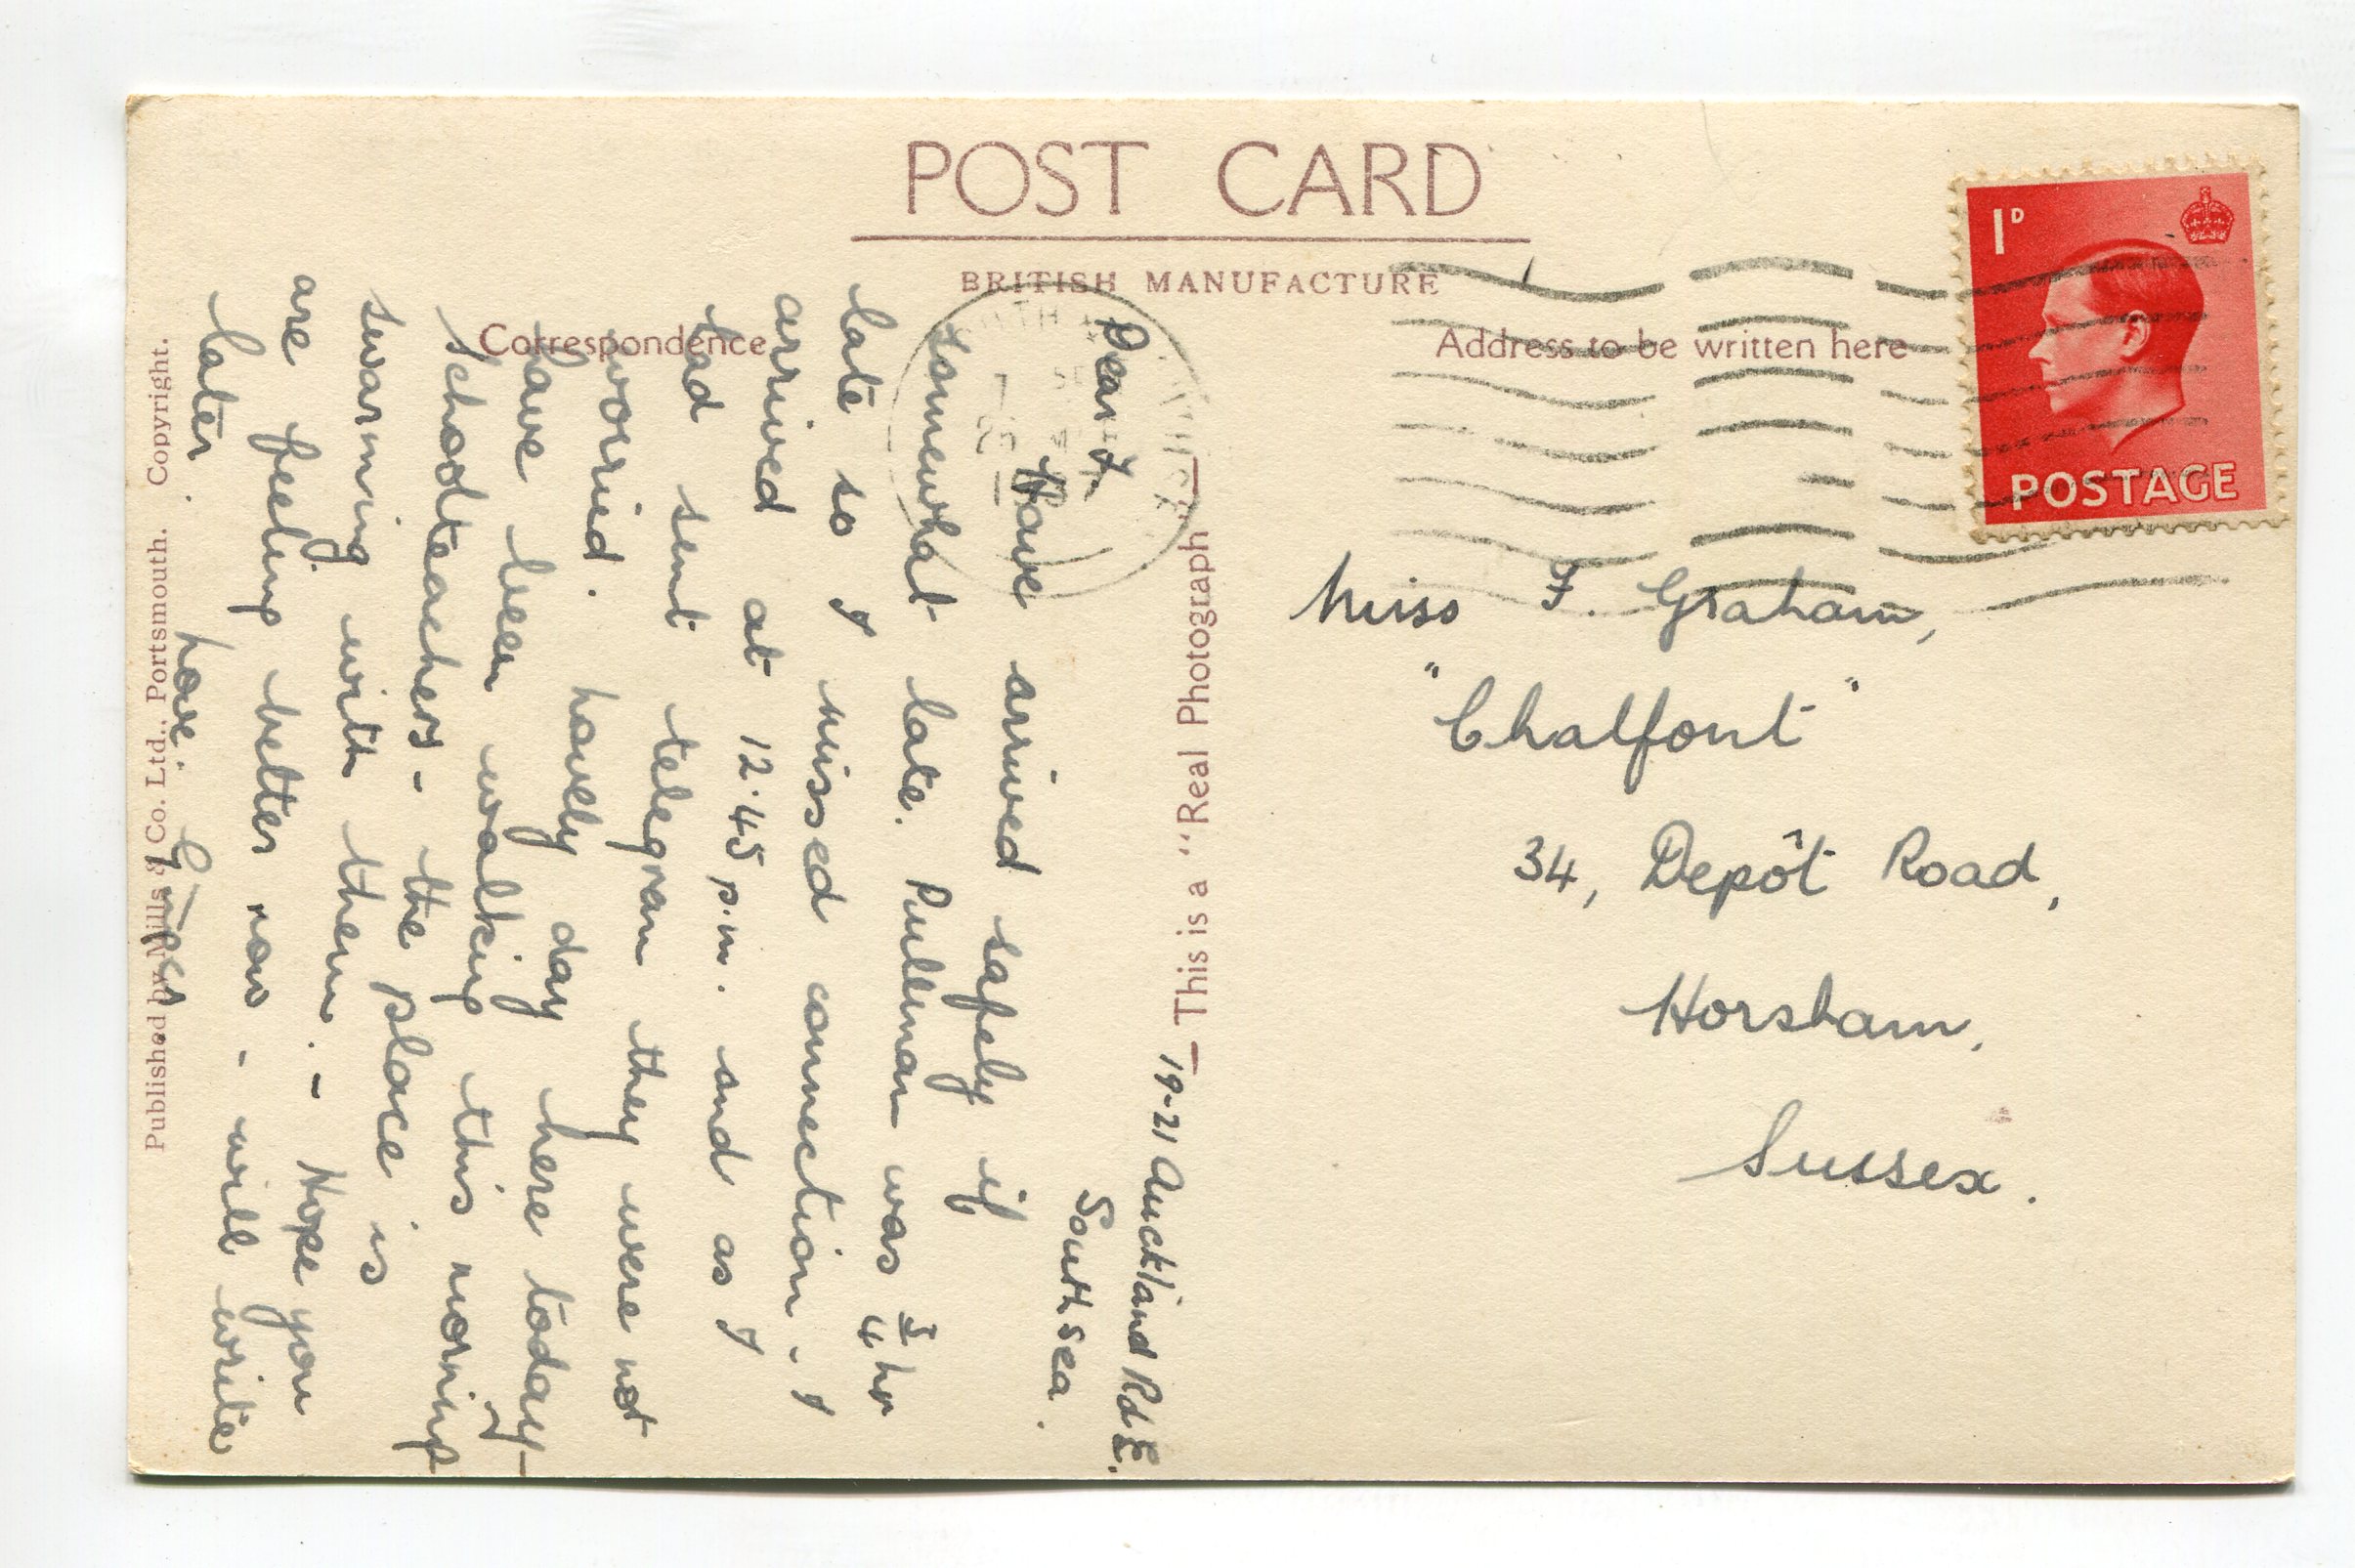 POST CARD
BRITISH MANUFACTURE
Correspondence
Address to be written here
1D
POSTAGE
Miss F. Graham,
"Chalfont"
34, Depôt Road,
Horsham,
Sussex.
This is a "Real Photograph"
Published by Mills & Co. Ltd., Portsmouth. Copyright.
19-21 Auckland Rd E.
Southsea.
Dear F
Have arrived safely if
somewhat late. Pullman was 3/4 hr
late so I missed connection. I
arrived at 12.45 p.m. and as I
had sent telegram they were not
worried. Lovely day here today -
have been walking this morning
Schoolteachers - the place is
swarming with them. - Hope you
are feeling better now - will write
later.
Love.